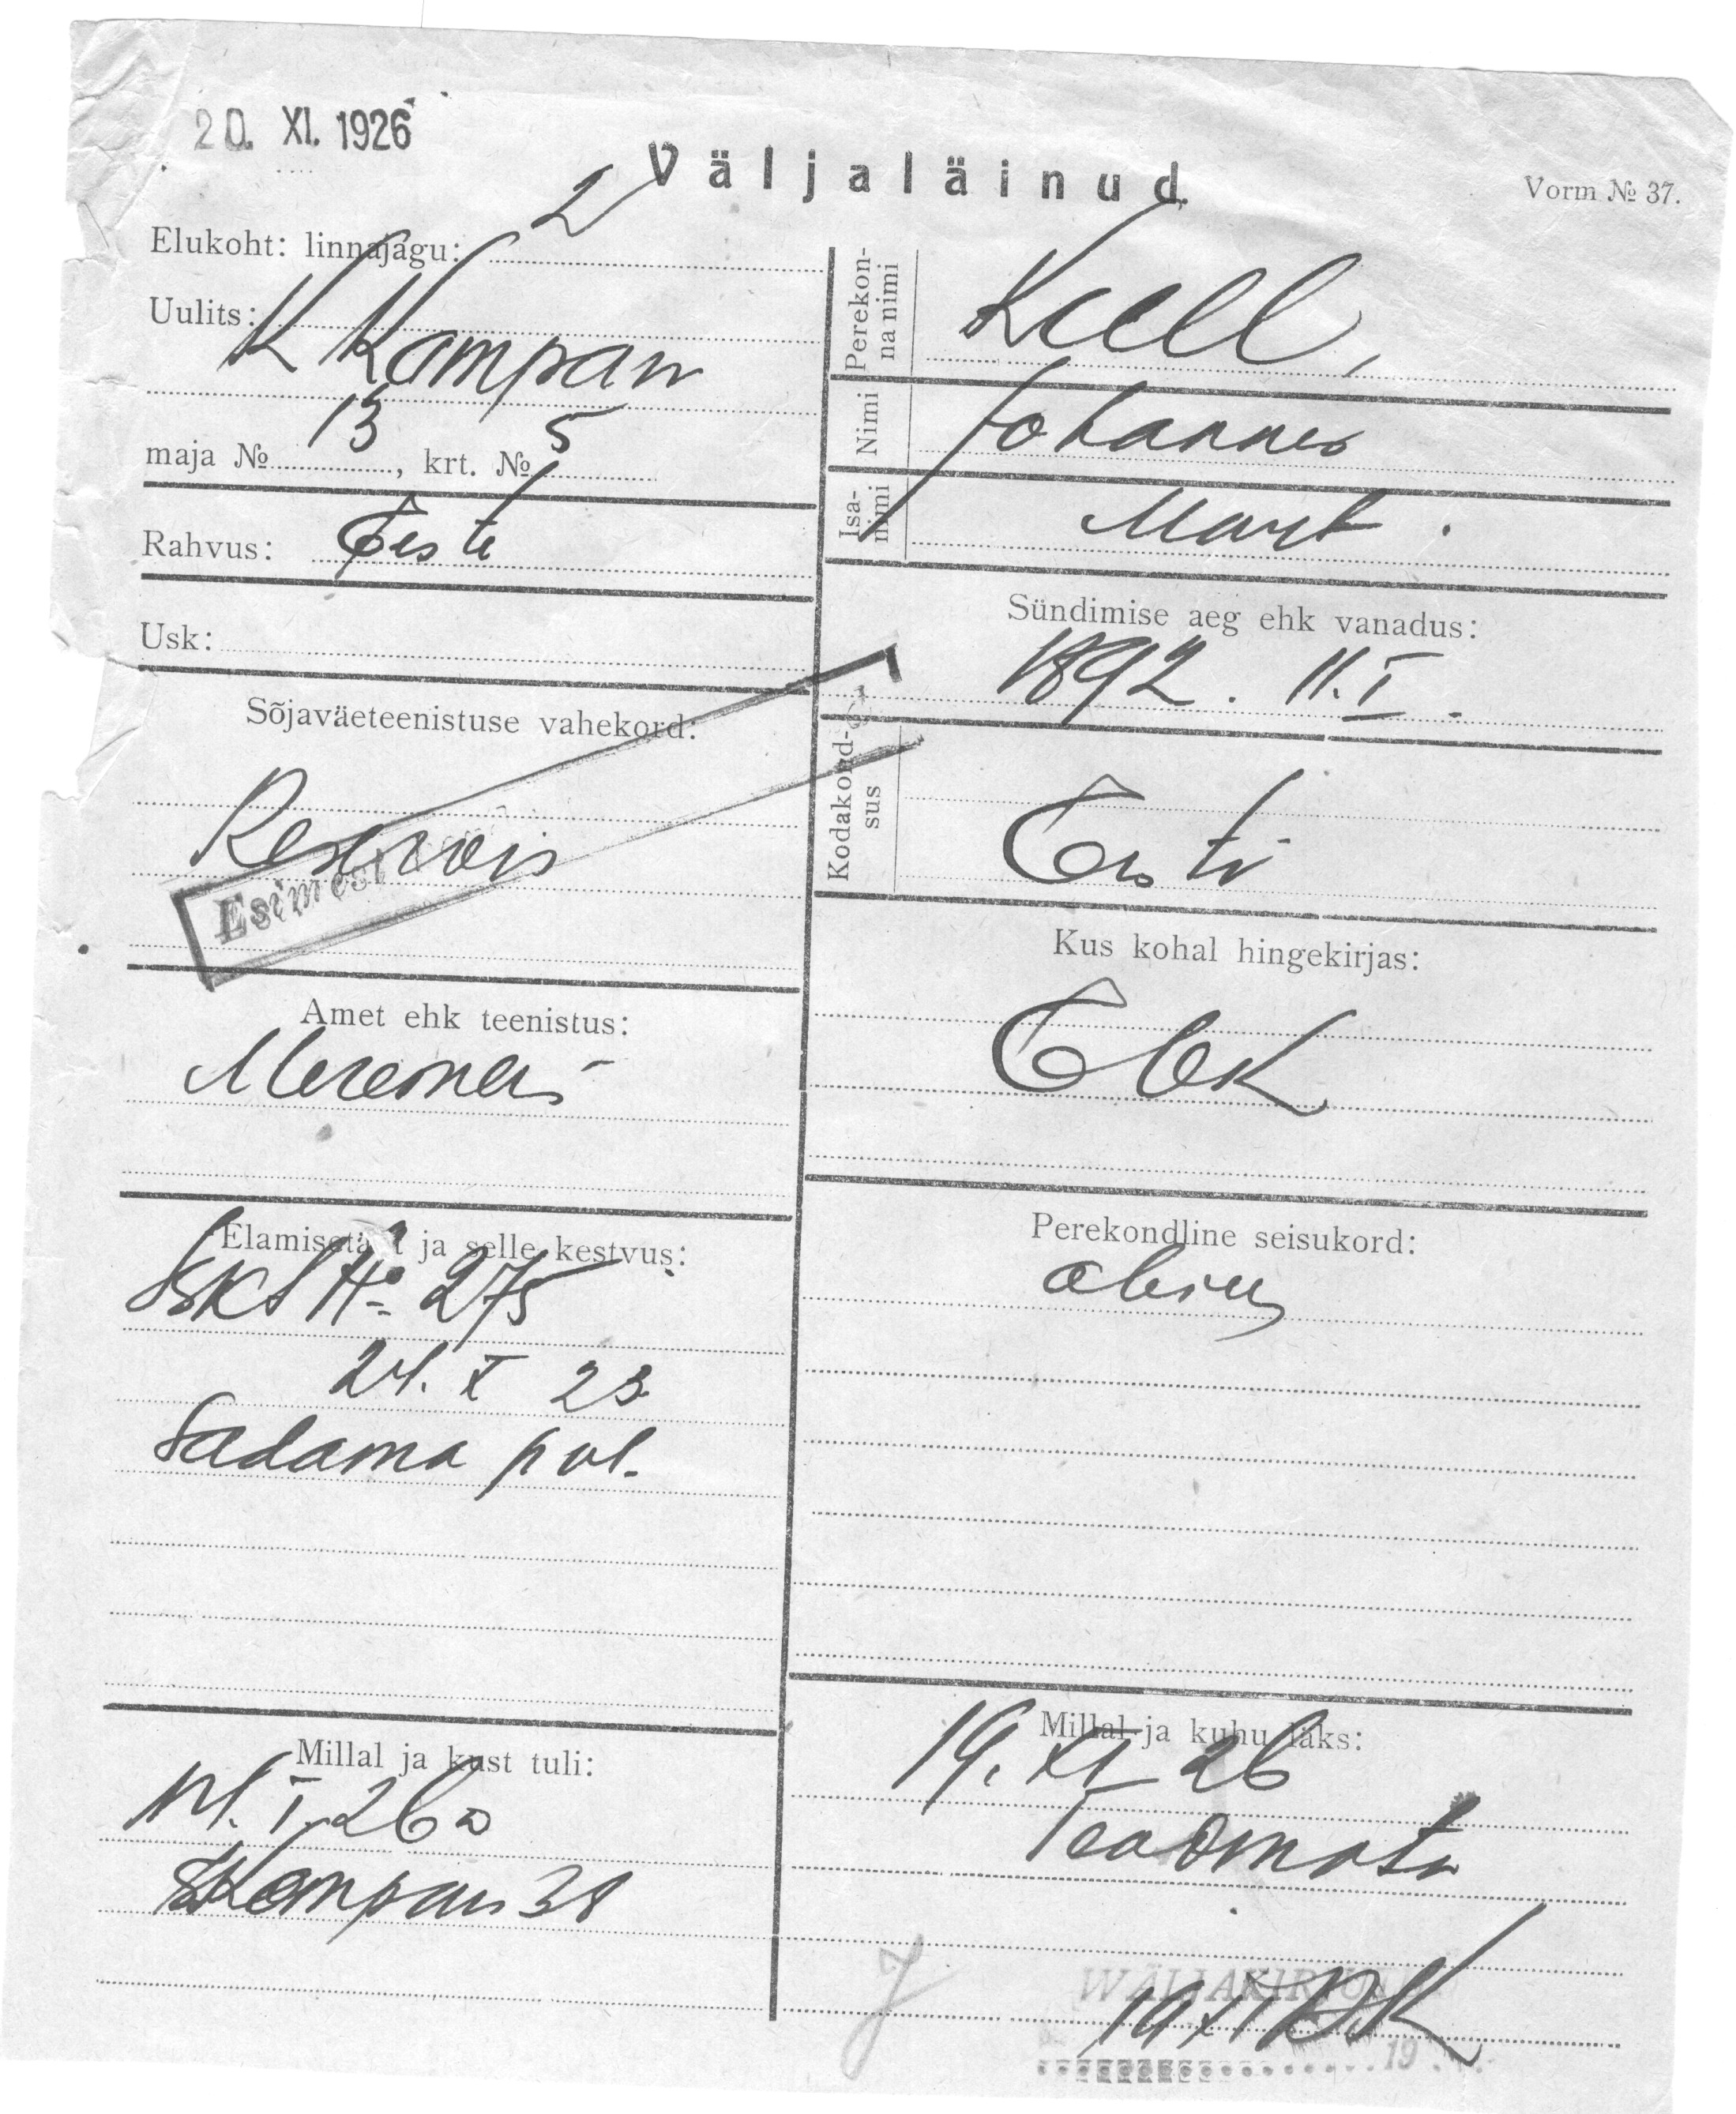 20. XI. 1926
Väljaläinud.
Vorm № 37.
Elukoht: linnajagu: 2
Uulits: K Kompan
maja № 13, krt. № 5
Rahvus: Eesti
Usk:
Sõjaväeteenistuse vahekord:
Reservis
Esimest
Amet ehk teenistus:
Meremees
Elamisetäht ja selle kestvus:
№ 275
24. X 23
Sadama pol.
Millal ja kust tuli:
I 26
Kompan
Perekonna nimi
Kull,
Nimi Johannes
Isanimi Mart.
Sündimise aeg ehk vanadus:
1892. 11. I.
Kodakondsus
Eesti
Kus kohal hingekirjas:
Perekondline seisukord:
abielus
Millal ja kuhu läks:
19. XI 26
Teadmata
WÄLJAKIRJUT
19 XI
19